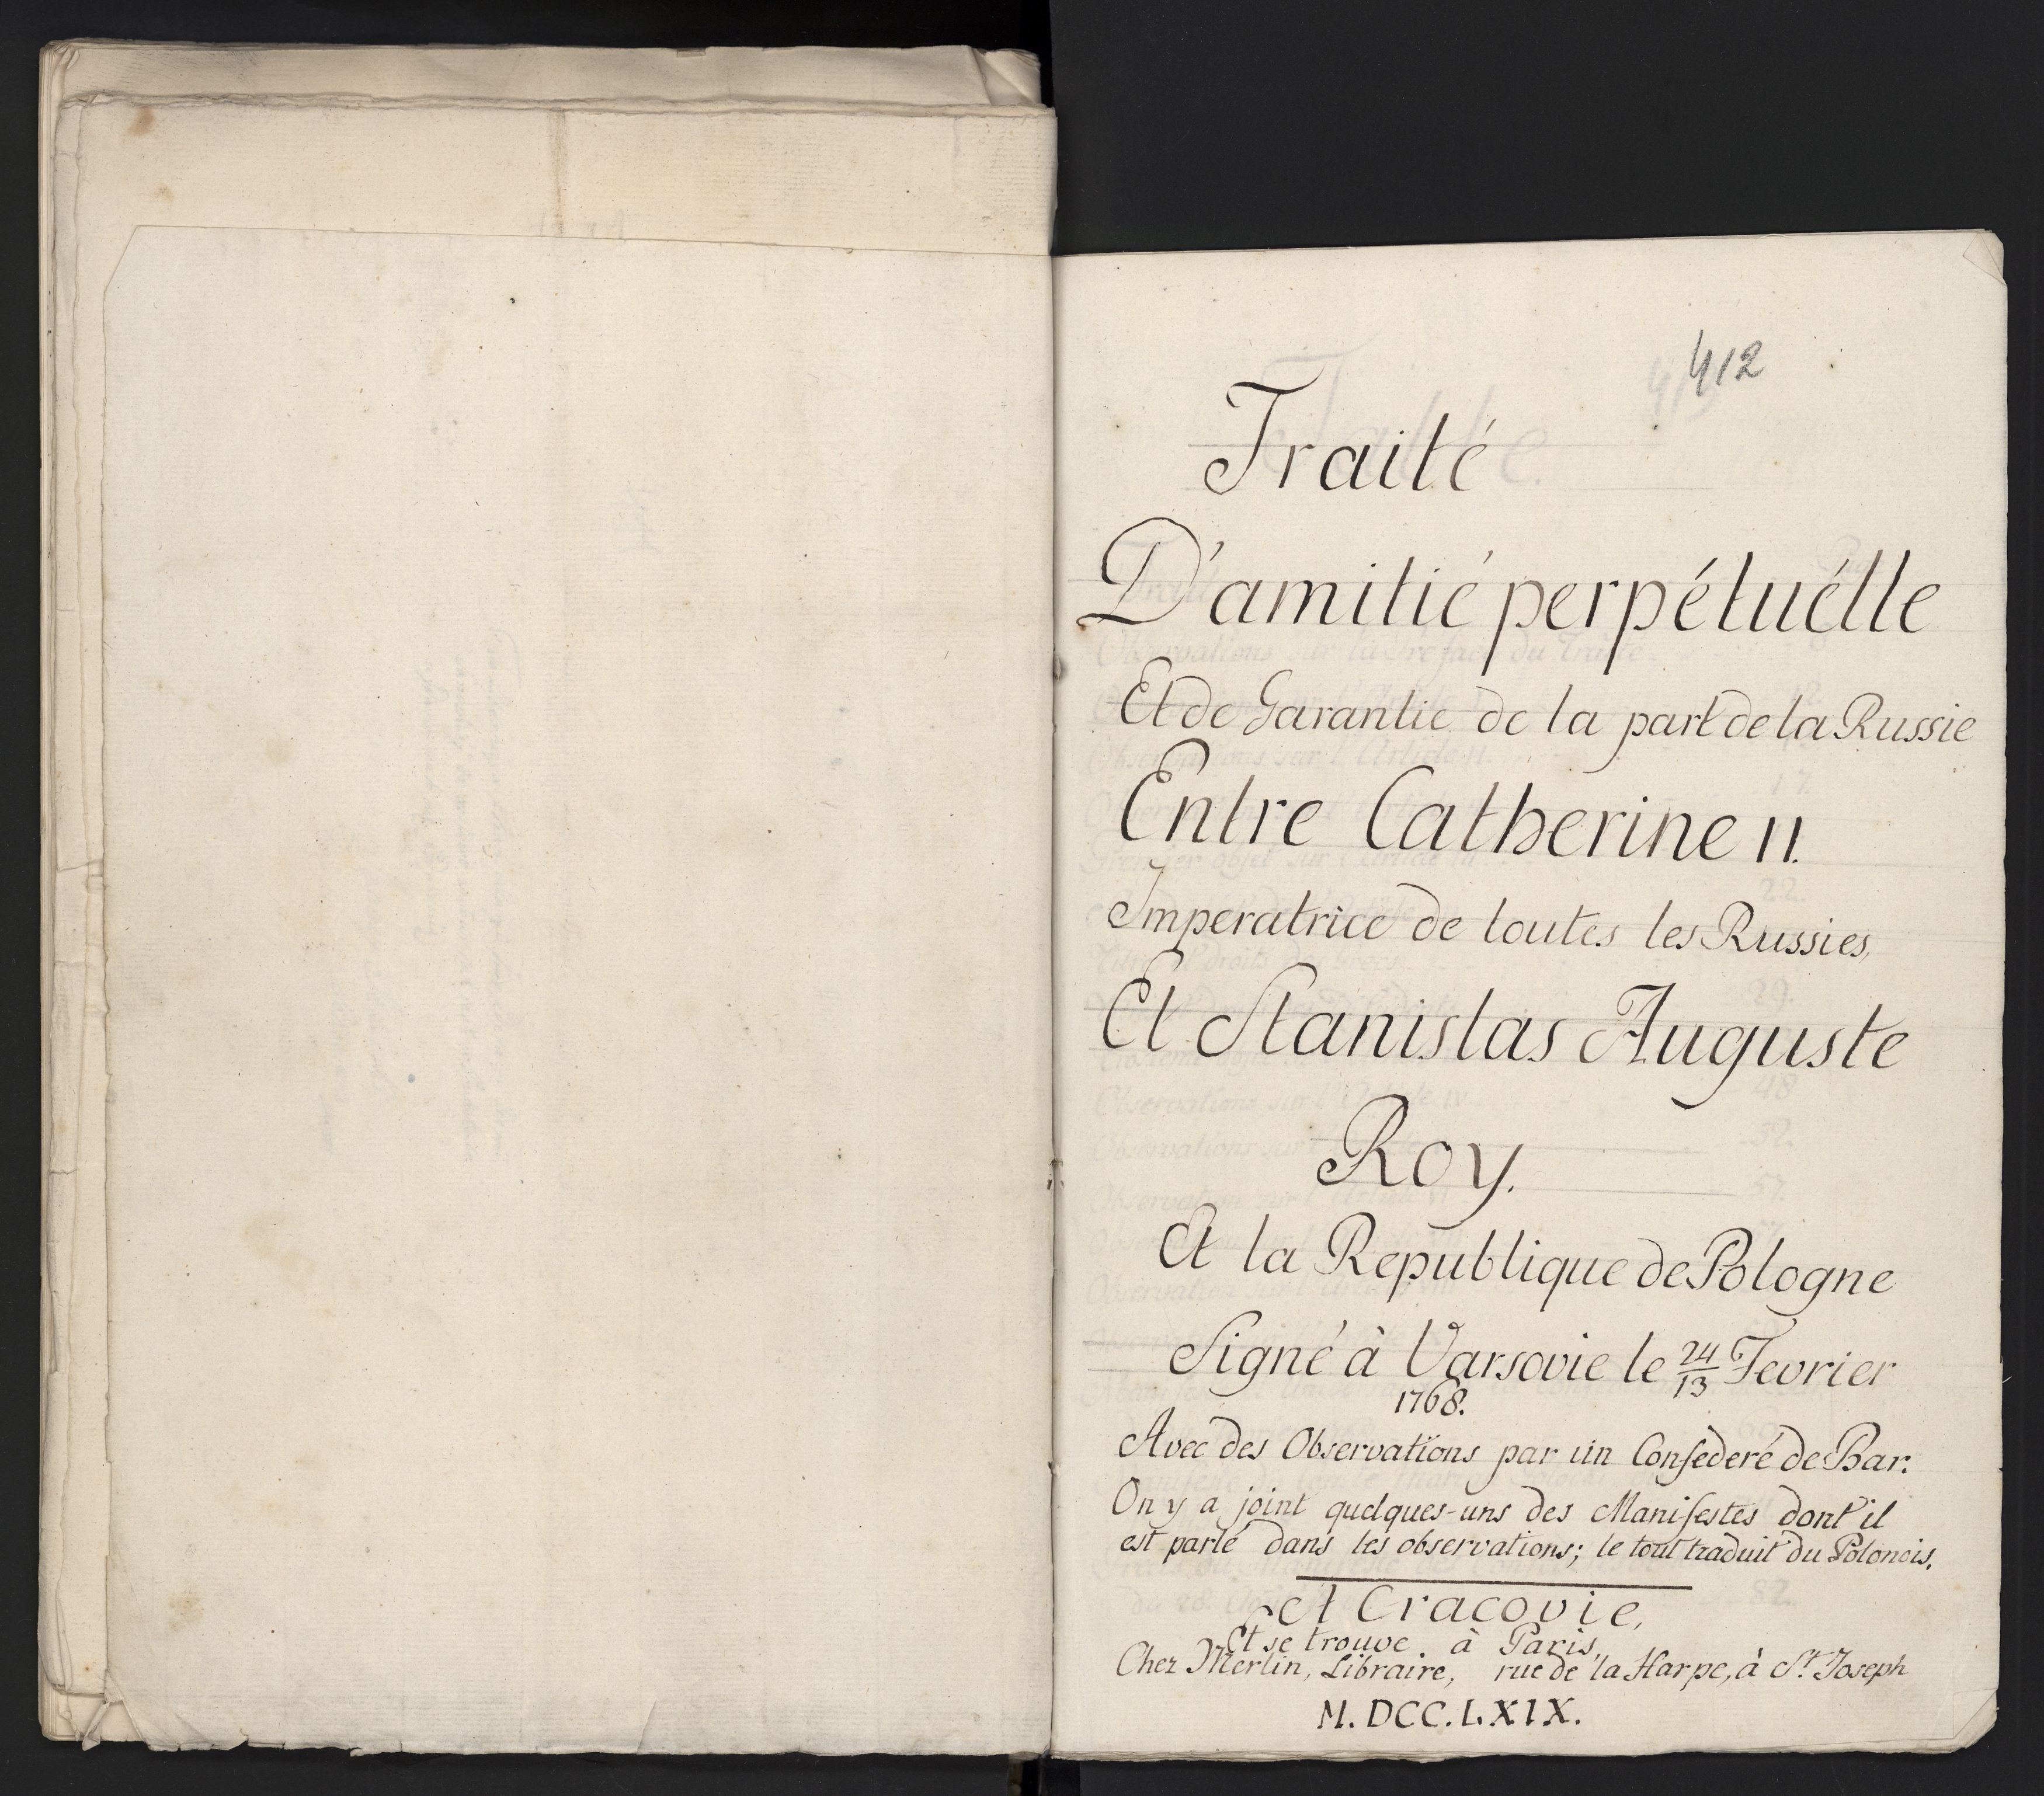 412
Traité
D'amitié perpétuélle
Et de Garantie de la part de la Russie
Entre Catherine II.
Imperatrice de toutes les Russies,
Et Stanislas Auguste
Roy.
Et la Republique de Pologne
Signé à Varsovie le 24/13 Fevrier
1768.
Avec des Observations par un Confederé de Bar.
On y a joint quelques-uns des Manifestes dont il
est parlé dans les observations; le tout traduit du Polonois.
A Cracovie,
Et se trouve à Paris,
Chez Merlin, Libraire, rue de la Harpe, à St. Joseph
M.DCC.LXIX.